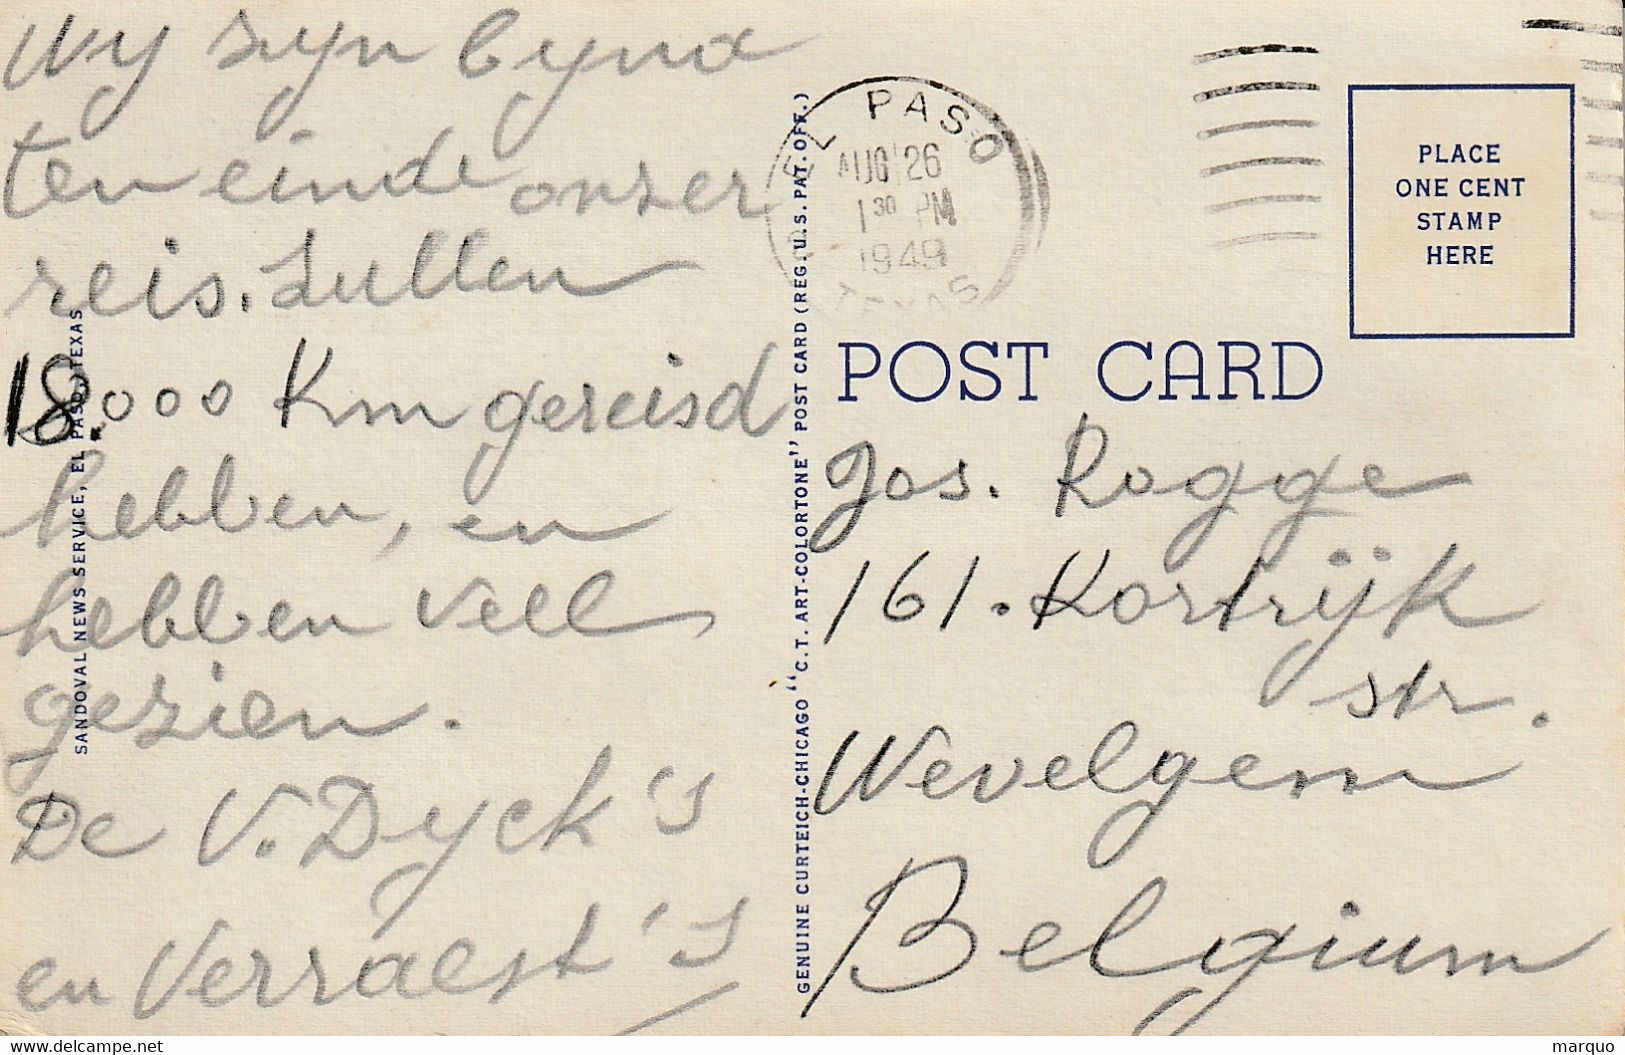 Wy syn byna
ten einde onzer
reis. Sullen
18.000 Km gereisd
hebben, en
hebben veel
gezien.
De V. Dyck's
en Verraest's
SANDOVAL NEWS SERVICE, EL PASO, TEXAS
GENUINE CURTEICH-CHICAGO "C.T. ART-COLORTONE" POST CARD (REG. U.S. PAT. OFF.)
EL PASO
AUG 26
1 30 PM
1949
TEXAS
PLACE
ONE CENT
STAMP
HERE
POST CARD
Jos. Rogge
161. Kortrijk
str.
Wevelgem
Belgium
www.delcampe.net
marquo